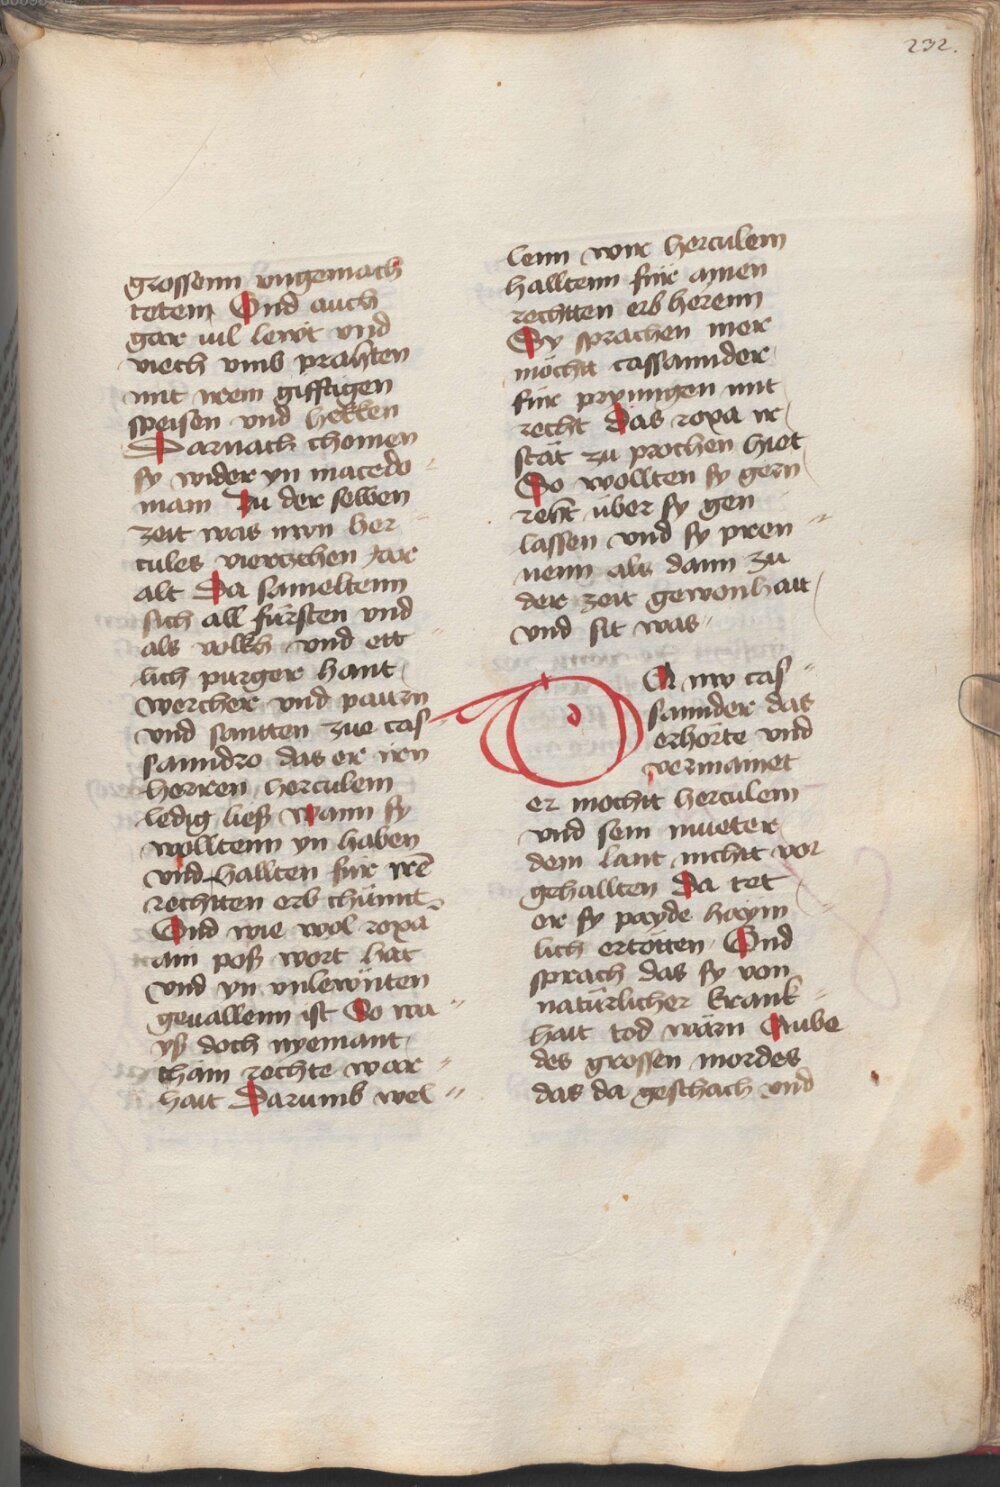 232.
grossenn vngemach
tetem Vnd auch
gar vil lewt vnd
viech vmb prahten
mit irem giftigen
speisen vnd hekken
Darnach chomen
sy wider yn macedo
niam Zu der selben
zeit was nwn her
cules vierzehen Jar
alt Da sameltenn
sich all fürsten vnd
als volkh vnd ett
lich purger hant
wercher vnd paurn
vnd santten zue cas
sanndro das er iren
herren herculem
ledig ließ wann sy
wolltenn yn haben
vnd hallten für irē
rechtten erb chünnt
Vnd wie wol roxa
ain poß wort hat
vnd yn vnlewnten
geuallenn ist So wa
yß doch nyemant
chain rechte war
hait Darumb wel
lenn wir herculem
halltenn für ainen
rechtten erb herenn
Sy sprachen mer
möcht cassannder
für pryungen mit
recht das roxa ir
stät zu prochen hiet
So wollten sy gern
recht über sy gen
lassen vnd sy pren
nenn als dann zu
der zeit gewonhait
vnd sit was
DA nw cas
sannder das
erhörte vnd
vermainet
er mochtt herculem
vnd sein mueter
dem lant nichtt vor
gehallten Da tet
er sy payde haym
lich ertötten Vnd
sprach das sy von
natürlicher krank
hait tod wärn Aube
des grossen mordes
das da geschach vnd